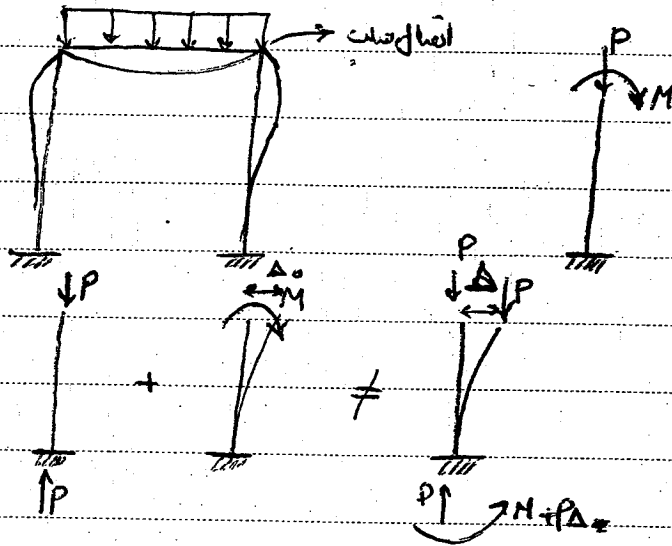 اتصال صلب
P
M
P
Δ₀
M
P
Δ
P
+
≠
P
P
M+PΔ